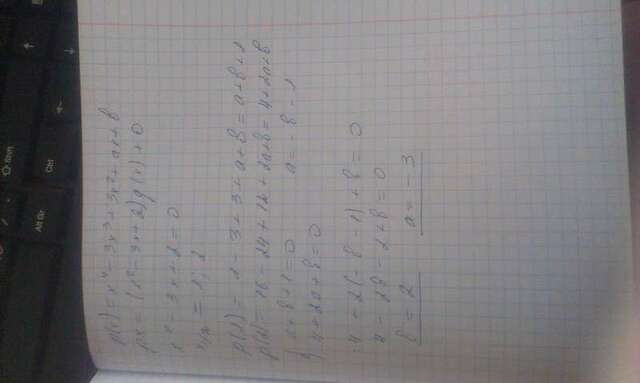 p(x) = x⁴ - 3x³ + 3x² + ax + b
px = (x² - 3x + 2) q(x) + 0
x² - 3x + 2 = 0
x₁/₂ = 1; 2
p(1) = 1 - 3 + 3 + a + b = a + b + 1
p(2) = 16 - 24 + 12 + 2a + b = 4 + 2a + b
a + b + 1 = 0 a = -b - 1
4 + 2a + b = 0
4 + 2(-b - 1) + b = 0
4 - 2b - 2 + b = 0
b = 2 a = -3
Alt Gr